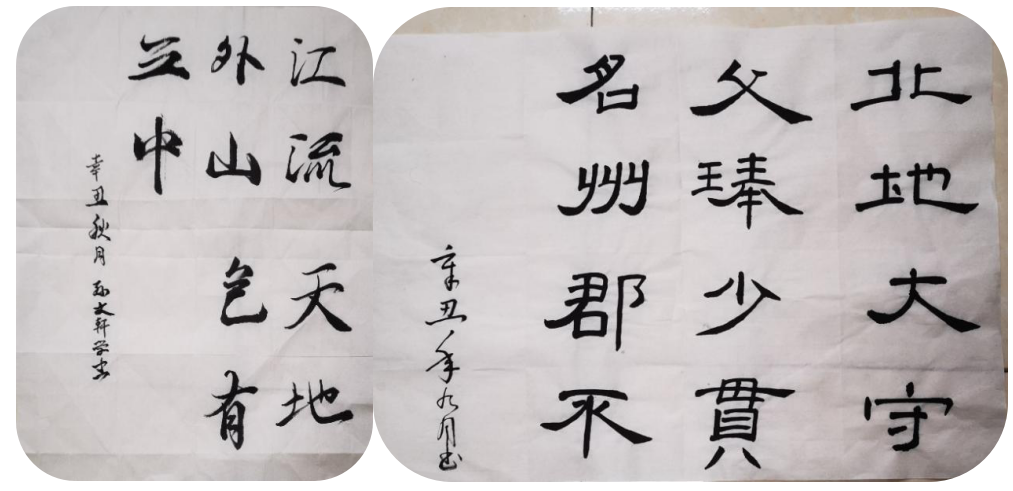 江流天地
外山色有
无中
辛丑秋月 孙文轩学书
北地大守
父琫少貫
名州郡不
辛丑年九月书